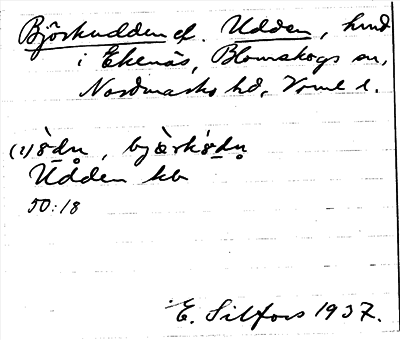 Björkudden el. Udden, hmd
i Ekenäs, Blomskogs sn,
Nordmarks hd, Vrml l.
Udden kb
50:18
E. Silfors 1937.